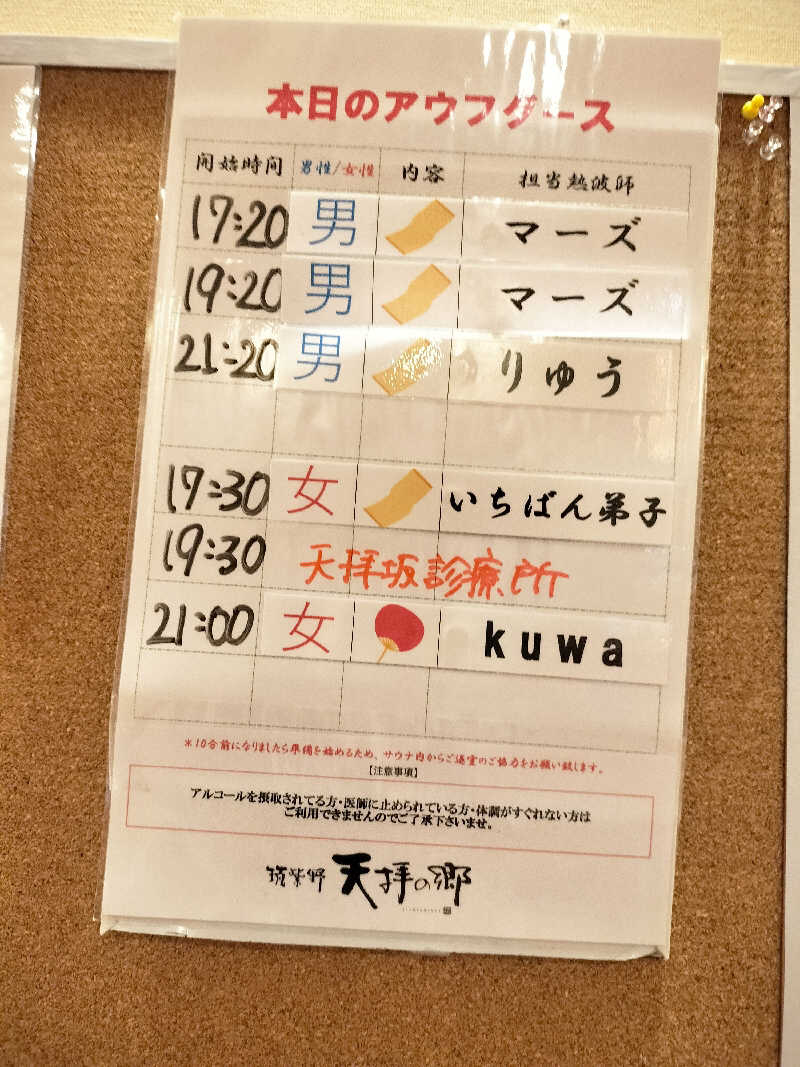 本日のアウフグース
開始時間 男性/女性 内容 担当熱波師
17:20 男 マーズ
19:20 男 マーズ
21:20 男 りゅう
17:30 女 いちばん弟子
19:30 天拝坂診療所
21:00 女 kuwa
＊10分前になりましたら準備を始めるため、サウナ内からご退室のご協力をお願い致します。
【注意事項】
アルコールを摂取されてる方・医師に止められている方・体調がすぐれない方は
ご利用できませんのでご了承下さいませ。
筑紫野 天拝の郷